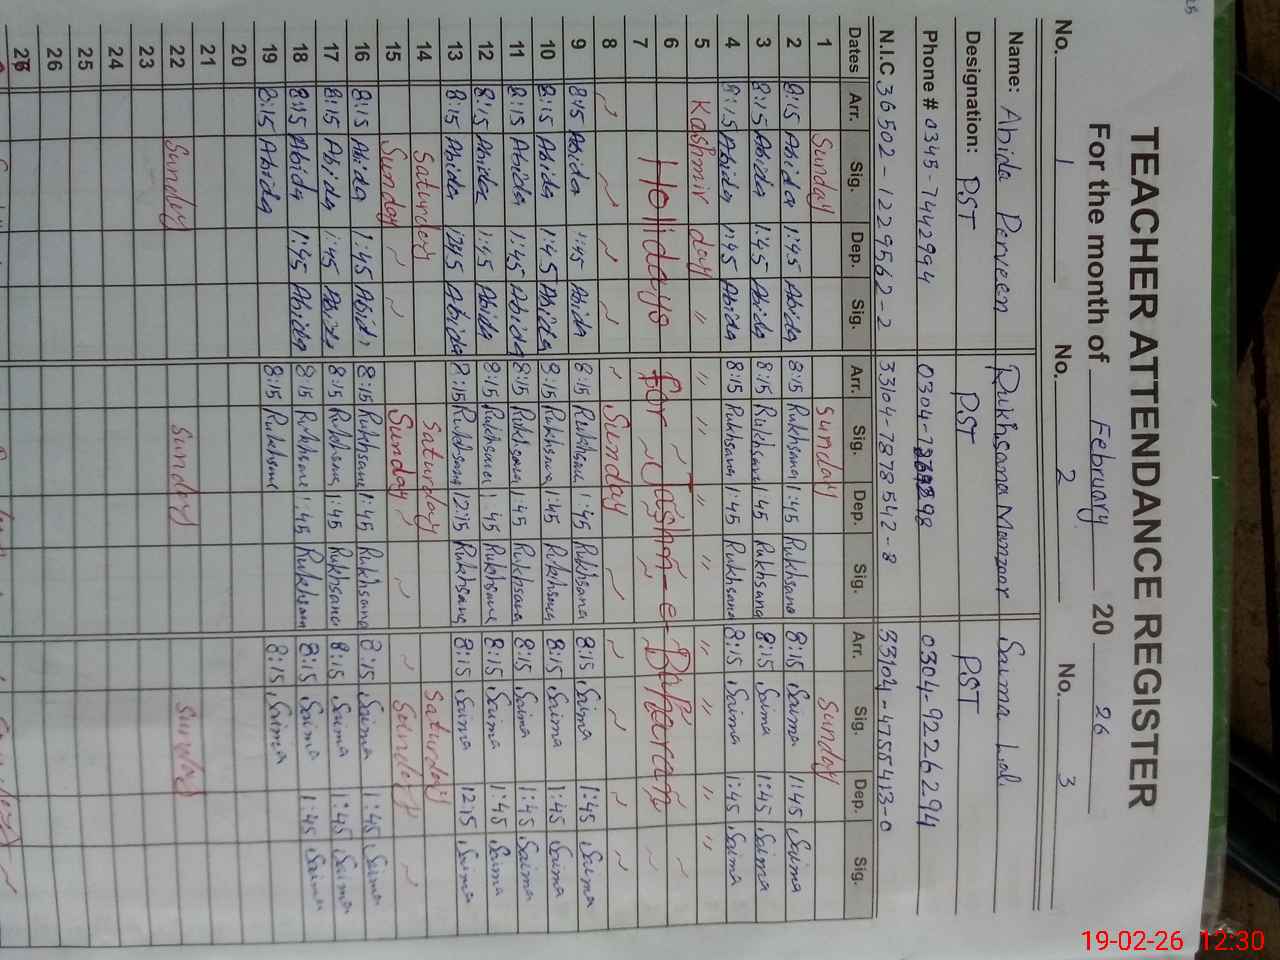 TEACHER ATTENDANCE REGISTER
For the month of February 20 26
No. 1 No. 2 No. 3
Name: Abida Perveen Rukhsana Manzoor Saima
Designation: PST PST PST
Phone # 0345-7442994 0304- 0304-9226294
N.I.C. 36502-1229562-2 33104-7878542-8 33104-4755413-0
Dates Arr. Sig. Dep. Sig. Arr. Sig. Dep. Sig. Arr. Sig. Dep. Sig.
1 Sunday Sunday Sunday
2 8:15 Abida 1:45 Abida 8:15 Rukhsana 1:45 Rukhsana 8:15 Saima 1:45 Saima
3 8:15 Abida 1:45 Abida 8:15 Rukhsana 1:45 Rukhsana 8:15 Saima 1:45 Saima
4 8:15 Abida 1:45 Abida 8:15 Rukhsana 1:45 Rukhsana 8:15 Saima 1:45 Saima
5 Kashmir day " " " " " " " " "
6
7 Hollidays for Jashn-e-
8 Sunday
9 8:15 Abida 1:45 Abida 8:15 Rukhsana 1:45 Rukhsana 8:15 Saima 1:45 Saima
10 8:15 Abida 1:45 Abida 8:15 Rukhsana 1:45 Rukhsana 8:15 Saima 1:45 Saima
11 8:15 Abida 1:45 Abida 8:15 Rukhsana 1:45 Rukhsana 8:15 Saima 1:45 Saima
12 8:15 Abida 1:45 Abida 8:15 Rukhsana 1:45 Rukhsana 8:15 Saima 1:45 Saima
13 8:15 Abida Abida 8:15 Rukhsana 12:15 Rukhsana 8:15 Saima 12:15 Saima
14 Saturday Saturday Saturday
15 Sunday Sunday Sunday
16 8:15 Abida 1:45 Abida 8:15 Rukhsana 1:45 Rukhsana 8:15 Saima 1:45 Saima
17 8:15 Abida 1:45 Abida 8:15 Rukhsana 1:45 Rukhsana 8:15 Saima 1:45 Saima
18 8:15 Abida 1:45 Abida 8:15 Rukhsana 1:45 Rukhsana 8:15 Saima 1:45 Saima
19 8:15 Abida 8:15 Rukhsana 8:15 Saima
20
21
22 Sunday Sunday Sunday
23
24
25
26
19-02-26 12:30